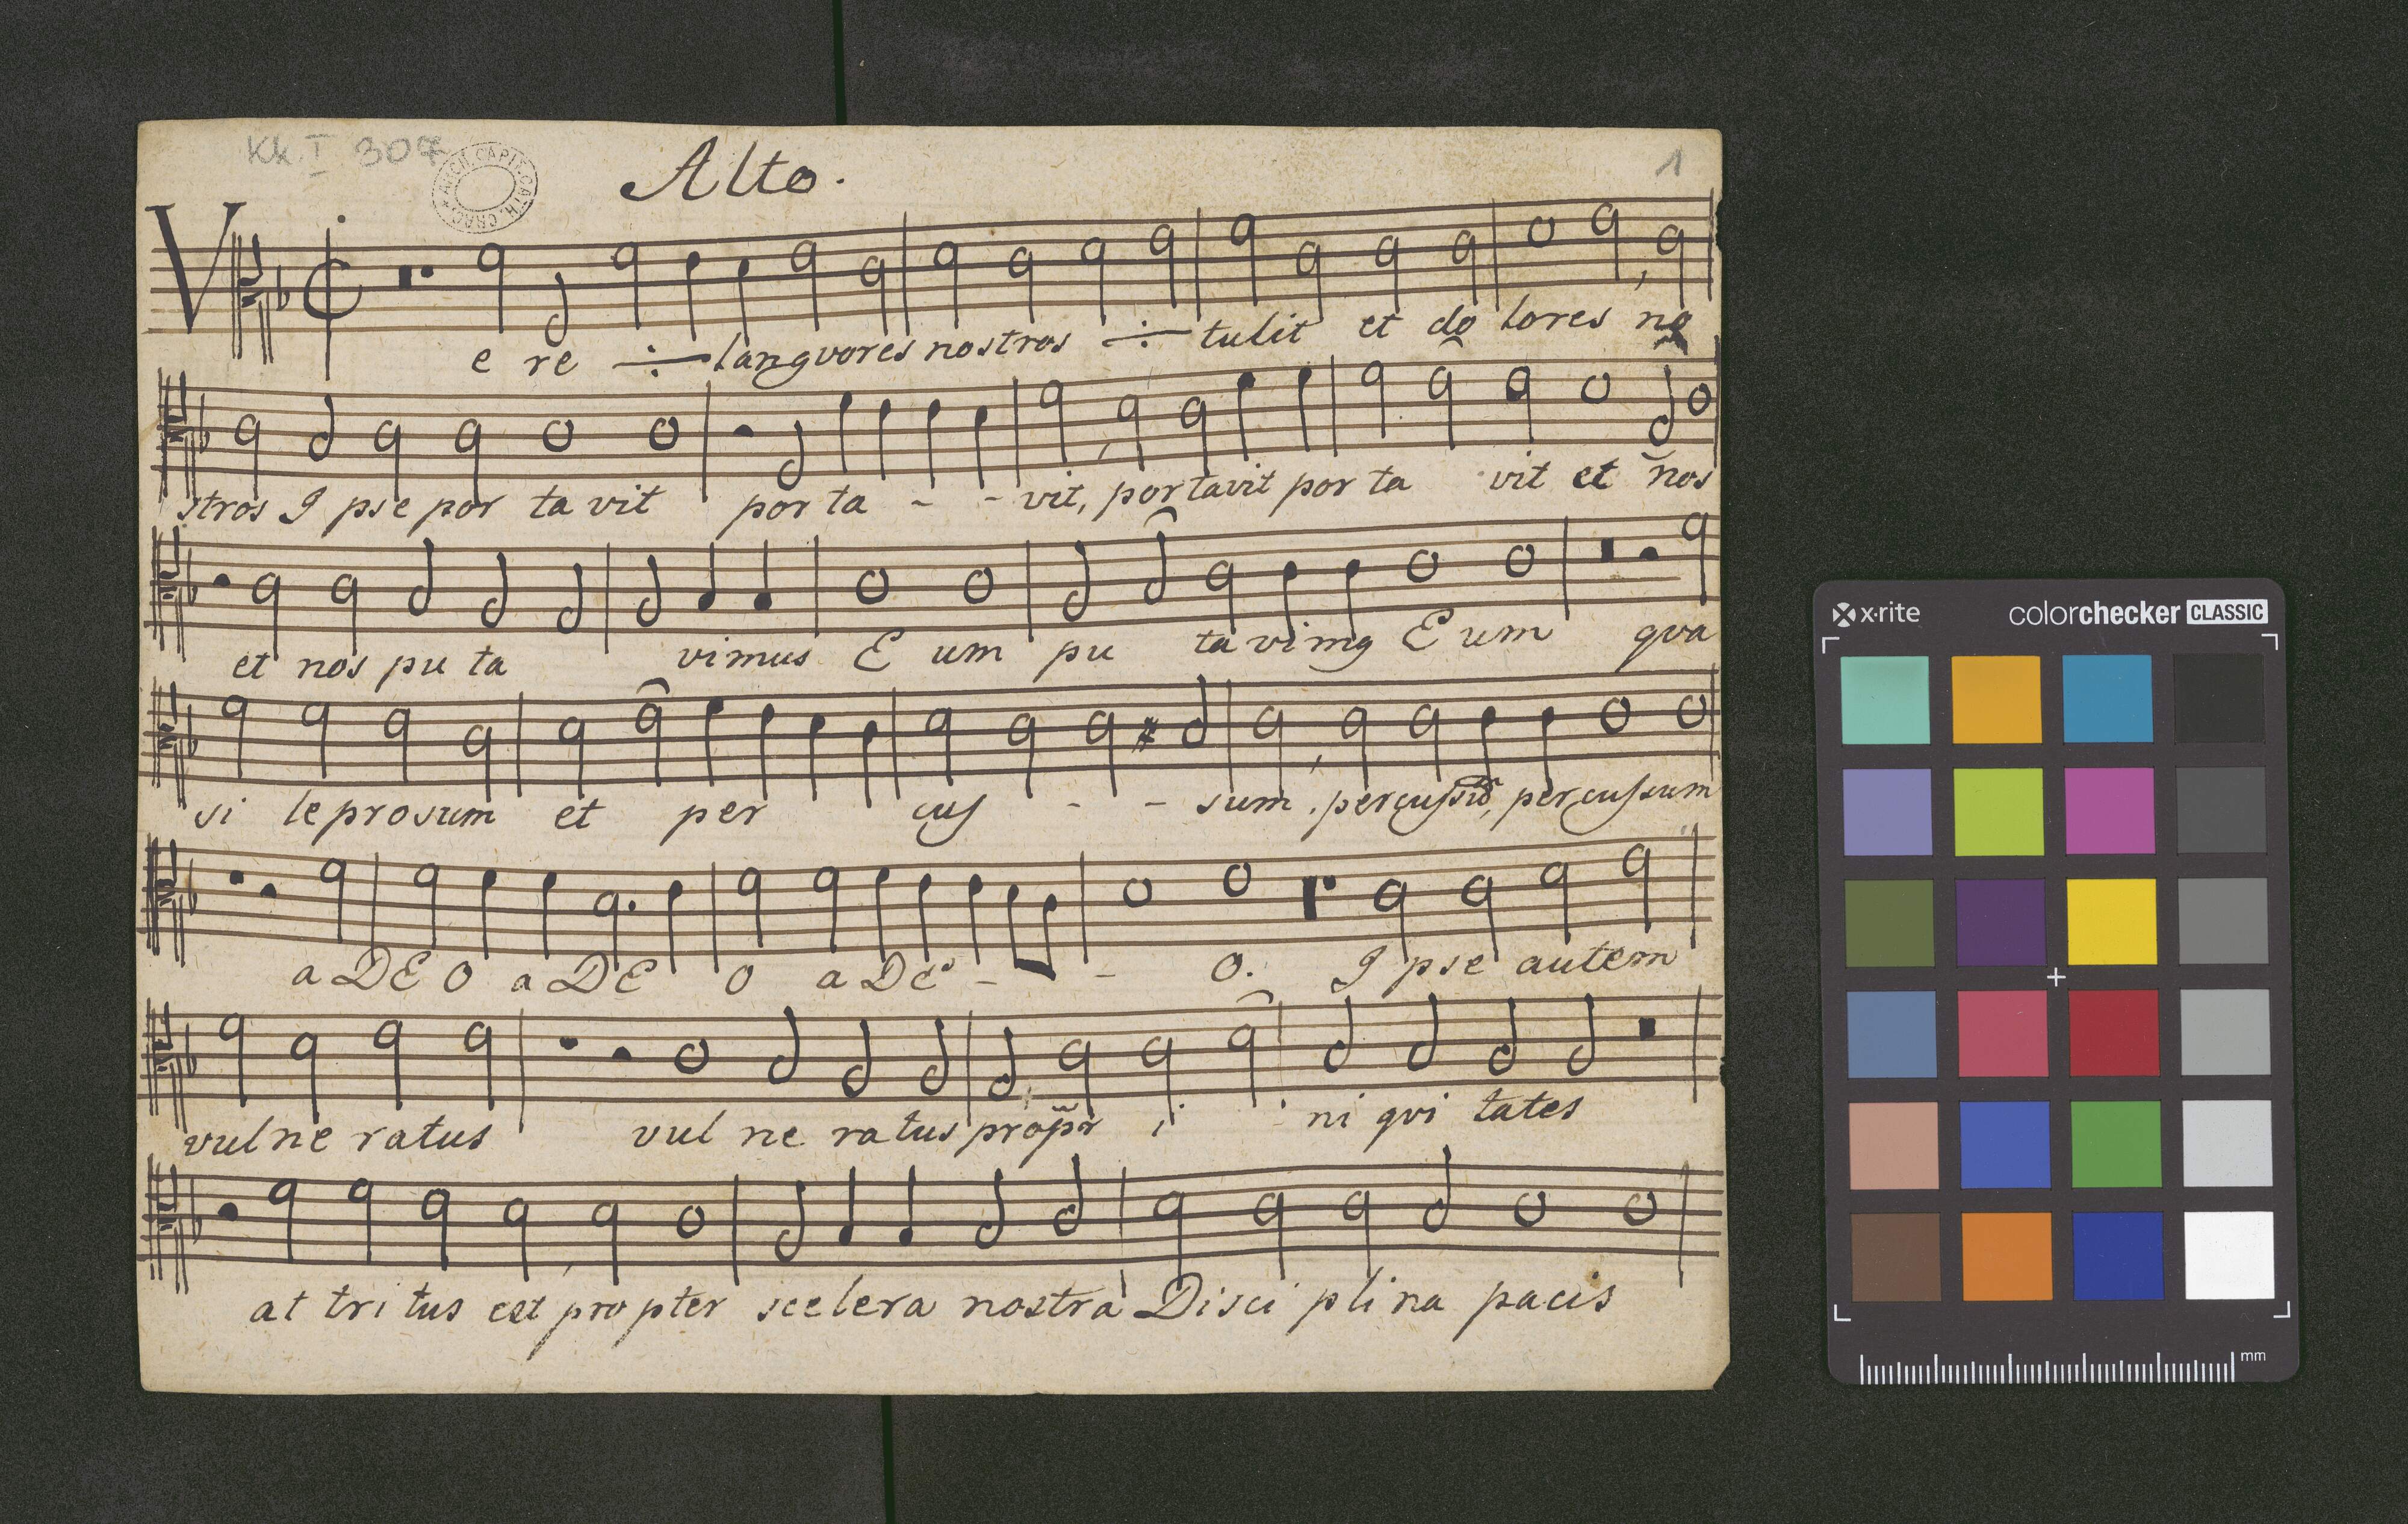 Kk I 307
ARCH. CAPIT. CATH. CRAC.
Alto.
1
V e re ÷ langvores nostros ÷ tulit et do lores no
stros I pse por ta vit por ta - - vit, portavit por ta vit et nos
et nos pu ta vimus E um pu ta vimg E um qva
si leprosum et per cuſ - - sum, percuſsũ, percuſsum
a DE O a DE O a DE - - O. I pse autem
vulne ratus vul ne ratus propr̃ i ni qvi tates
at tri tus est, pro pter scelera nostra Disci pli na pacis
x·rite
colorchecker CLASSIC
mm